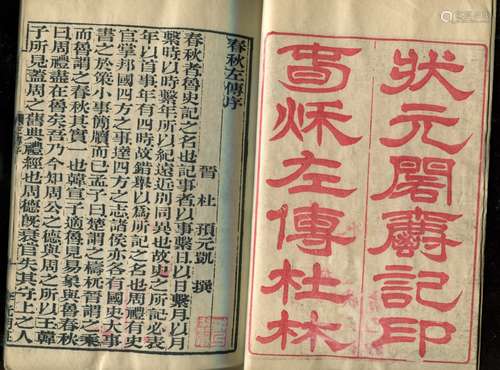 狀元閣爵記印
春秋左傳杜林
春秋左傳序
晉 杜 預元凱 撰
春秋者魯史記之名也記事者以事繫日以日繫月以月
繫時以時繫年所以紀遠近別同異也故史之所記必表
年以首事年有四時故錯舉以爲所記之名也周禮有史
官掌邦國四方之事達四方之志諸侯亦各有國史大事
書之於策小事簡牘而已孟子曰楚謂之檮杌晉謂之乘
而魯謂之春秋其實一也韓宣子適魯見易象與魯春秋
曰周禮盡在魯矣吾乃今知周公之德與周之所以王韓
子所見蓋周之舊典禮經也周德既衰官失其守上之人